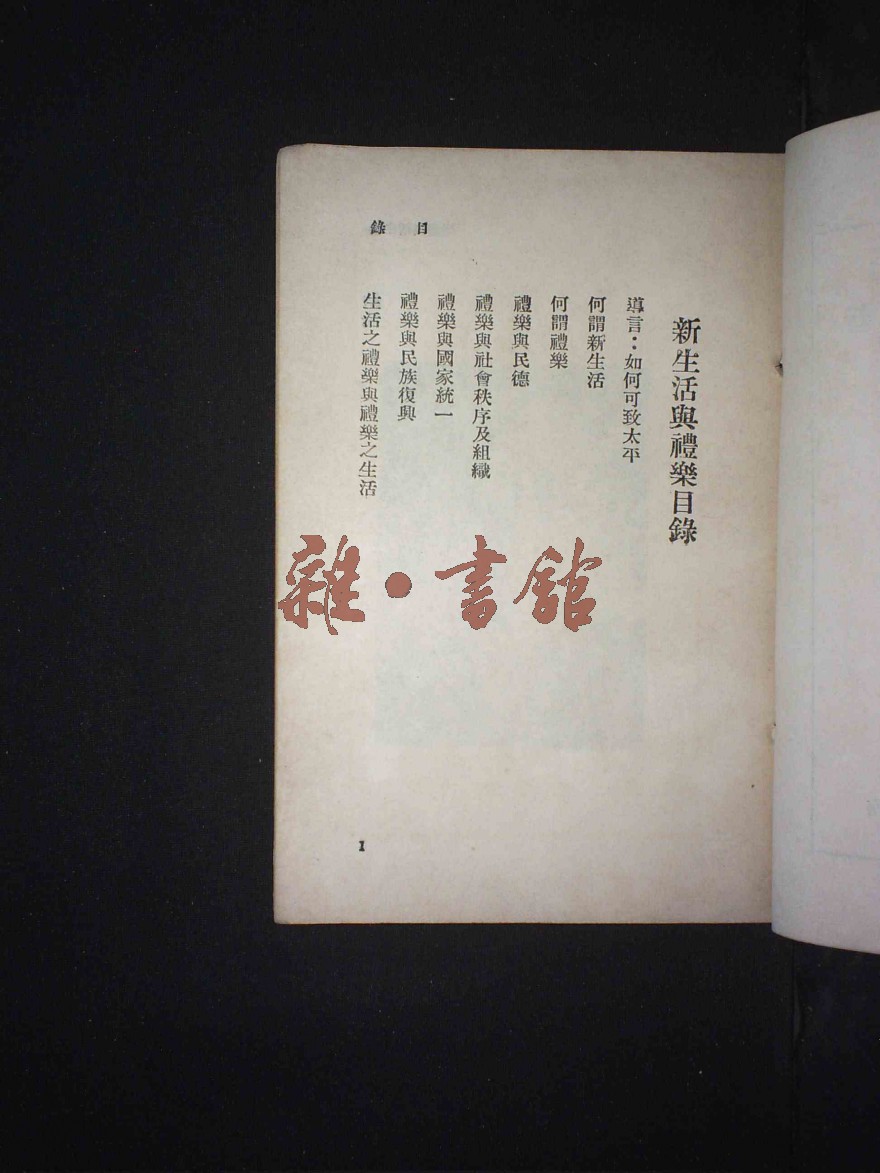 目錄
新生活與禮樂目錄
導言：如何可致太平
何謂新生活
何謂禮樂
禮樂與民德
禮樂與社會秩序及組織
禮樂與國家統一
禮樂與民族復興
生活之禮樂與禮樂之生活
雜·書館
1